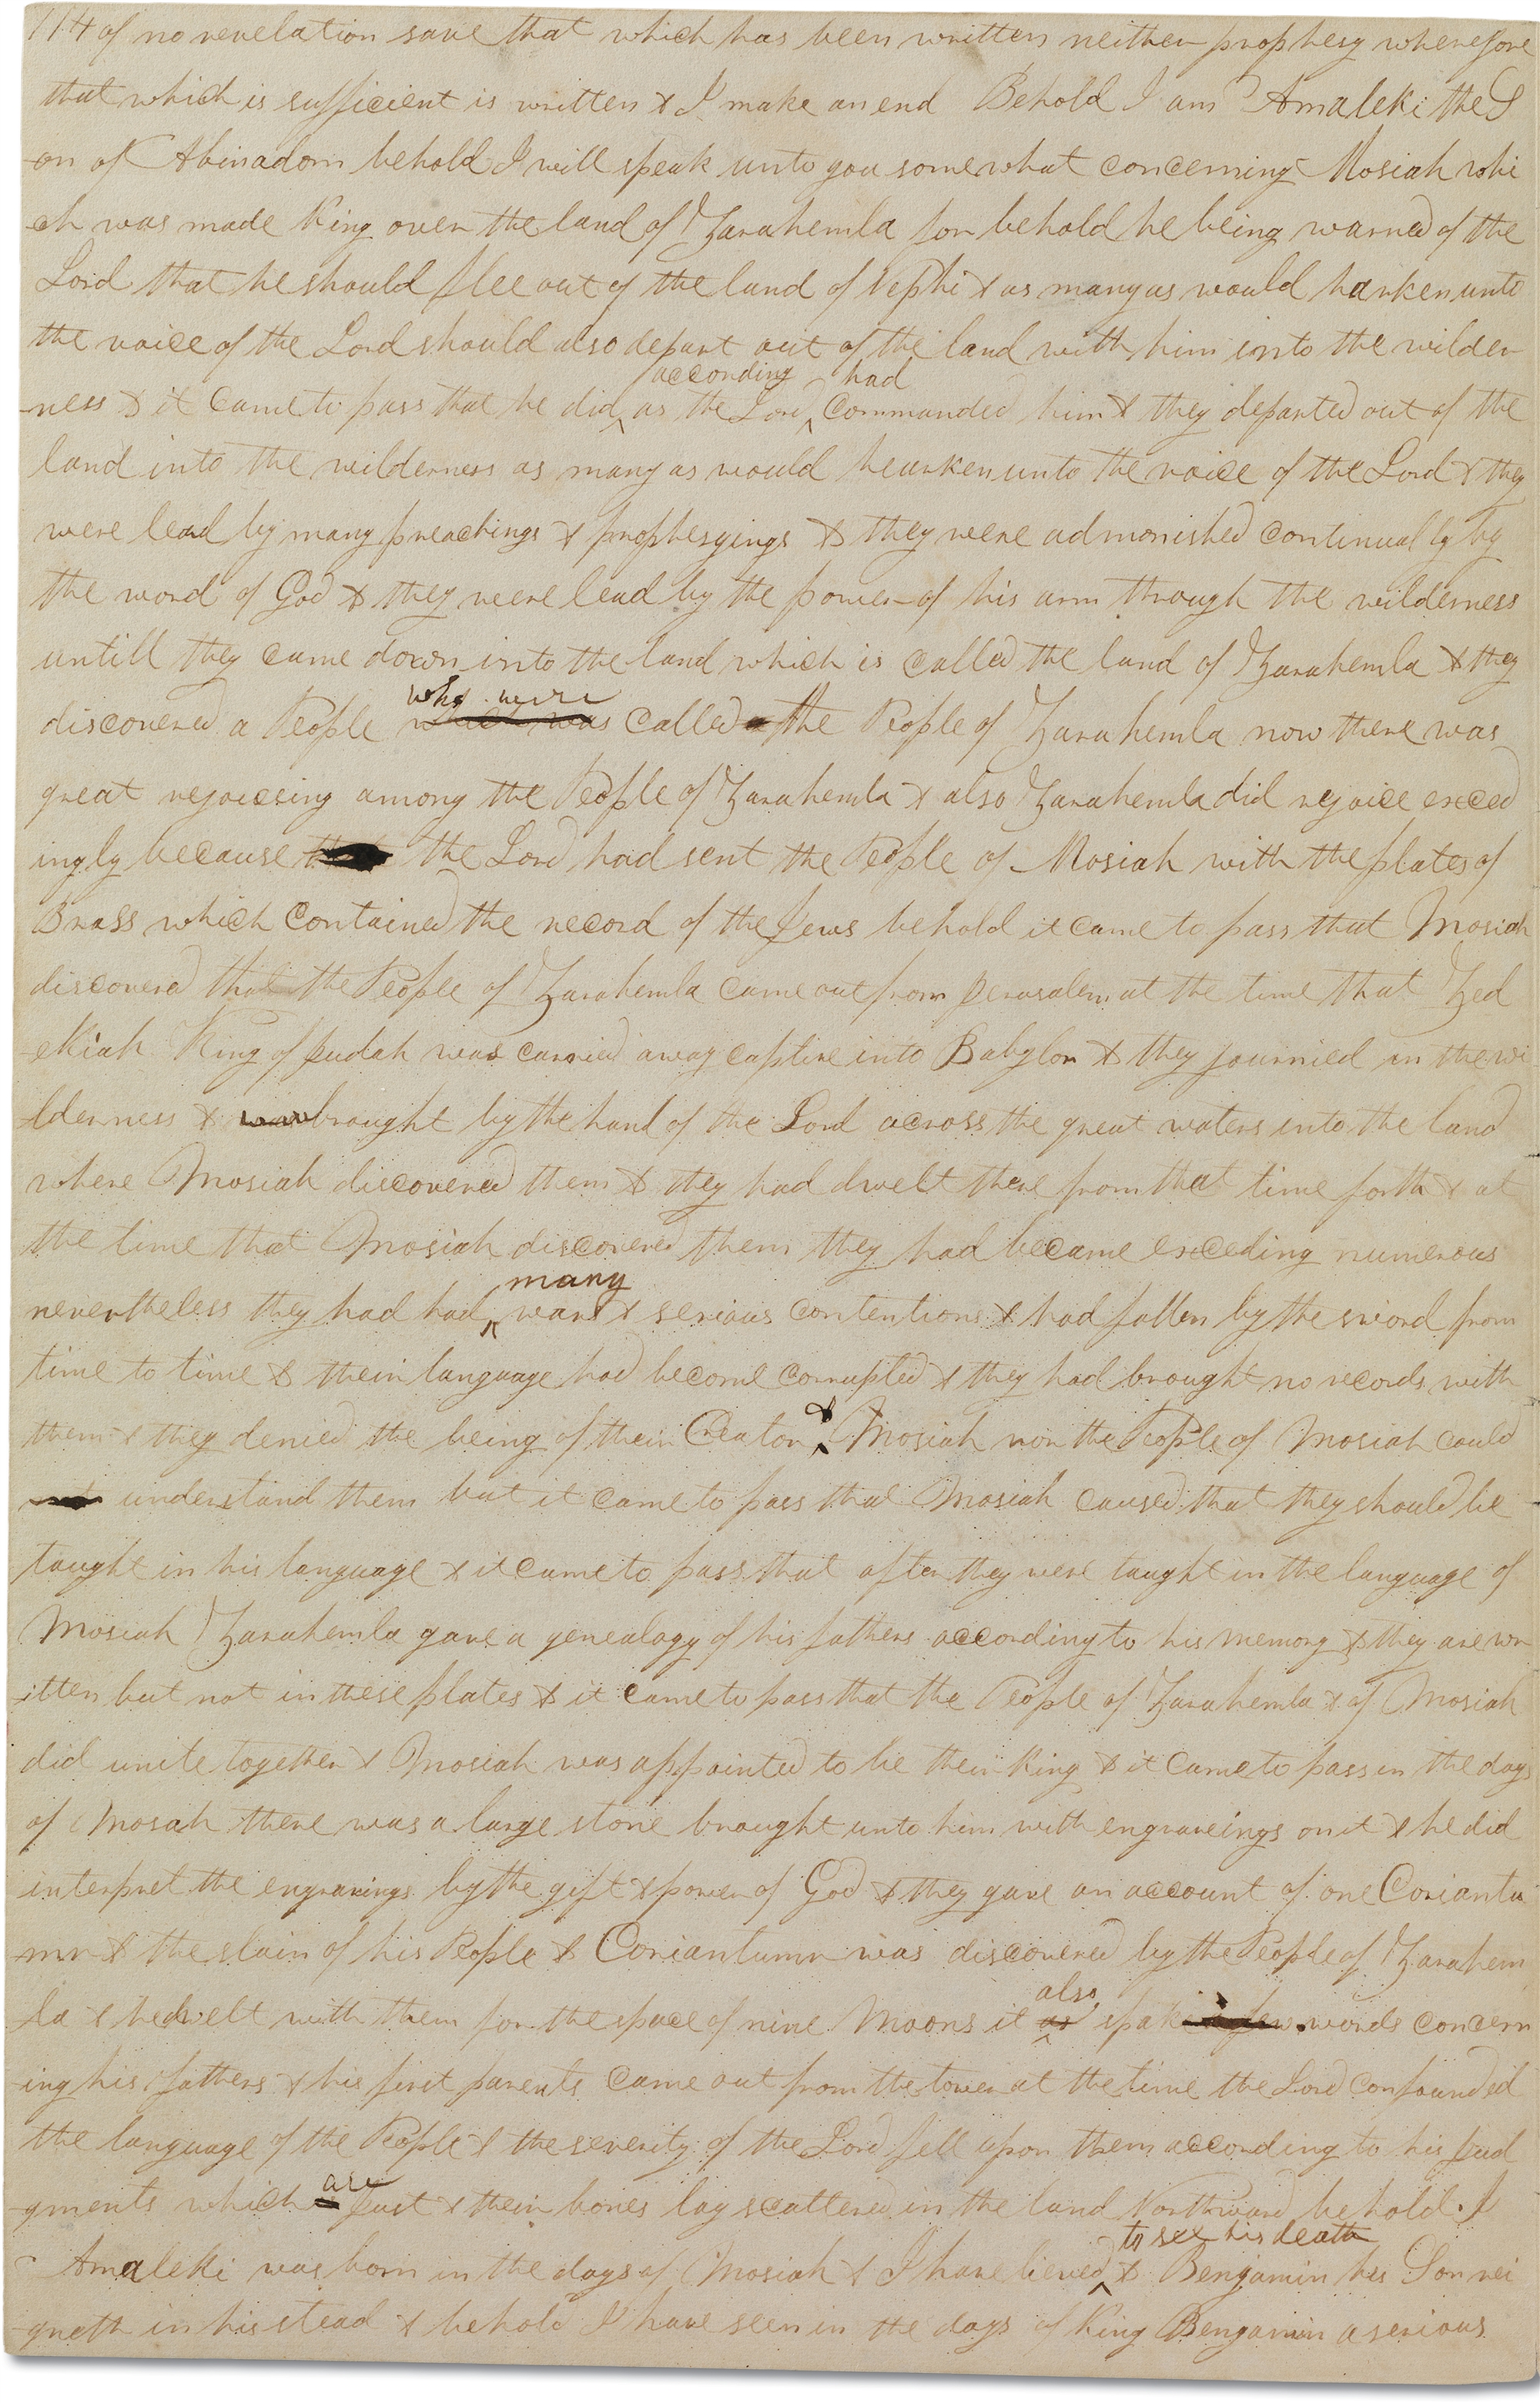 114 of no revelation save that which has been written neither prophesy wherefore
that which is sufficient is written & I make an end Behold I am Amaleki the S
-on of Abinadom behold I will speak unto you somewhat concerning Mosiah whi
-ch was made King over the land of Zarahemla for behold he being warned of the
Lord that he should flee out of the land of Nephi & as many as would harken unto
the voice of the Lord should also depart out of the land with him into the wilder
according had
-ness & it came to pass that he did as the Lord commanded him & they departed out of the
land into the wilderness as many as would hearken unto the voice of the Lord & they
were lead by many preachings & prophesyings & they were admonished continually by
the word of God & they were lead by the power of his arm through the wilderness
untill they came down into the land which is called the land of Zarahemla & they
who were
discovered a People which was called the People of Zarahemla now there was
great rejoiceing among the People of Zarahemla & also Zarahemla did rejoice exceed
ingly because the Lord had sent the People of Mosiah with the plates of
Brass which contained the record of the Jews behold it came to pass that Mosiah
discovered that the People of Zarahemla came out from Jerusalem at the time that Zed
-ekiah King of Judah was carried away captive into Babylon & they journied in the wi
-lderness & was brought by the hand of the Lord across the great waters into the land
where Mosiah discovered them & they had dwelt there from that time forth & at
the time that Mosiah discovered them they had became exceding numerous
many
nevertheless they had had wars & serious contentions & had fallen by the sword from
time to time & their language had become corrupted & they had brought no records with
&
them & they denied the being of their Creator Mosiah nor the People of Mosiah could
understand them but it came to pass that Mosiah caused that they should be
taught in his language & it came to pass that after they were taught in the language of
Mosiah Zarahemla gave a genealogy of his fathers according to his memory & they are wr
-itten but not in these plates & it came to pass that the People of Zarahemla & of Mosiah
did unite together & Mosiah was appointed to be their King & it came to pass in the days
of Mosah there was a large stone brought unto him with engraveings on it & he did
interpret the engravings by the gift & power of God & they gave an account of one Coriantu
-mr & the slain of his People & Coriantumr was discovered by the People of Zarahem
also
-la & he dwelt with them for the space of nine Moons it spake a few words concern
-ing his fathers & his first parents came out from the tower at the time the Lord confounded
the language of the People & the severity of the Lord fell upon them according to his Jud
are
-gments which is Just & their bones lay scattered in the land Northward behold I
to see his death
Amaleki was born in the days of Mosiah & I have lieved & Benjamin his Son rei
-gneth in his stead & behold I have seen in the days of King Benjamin a serious